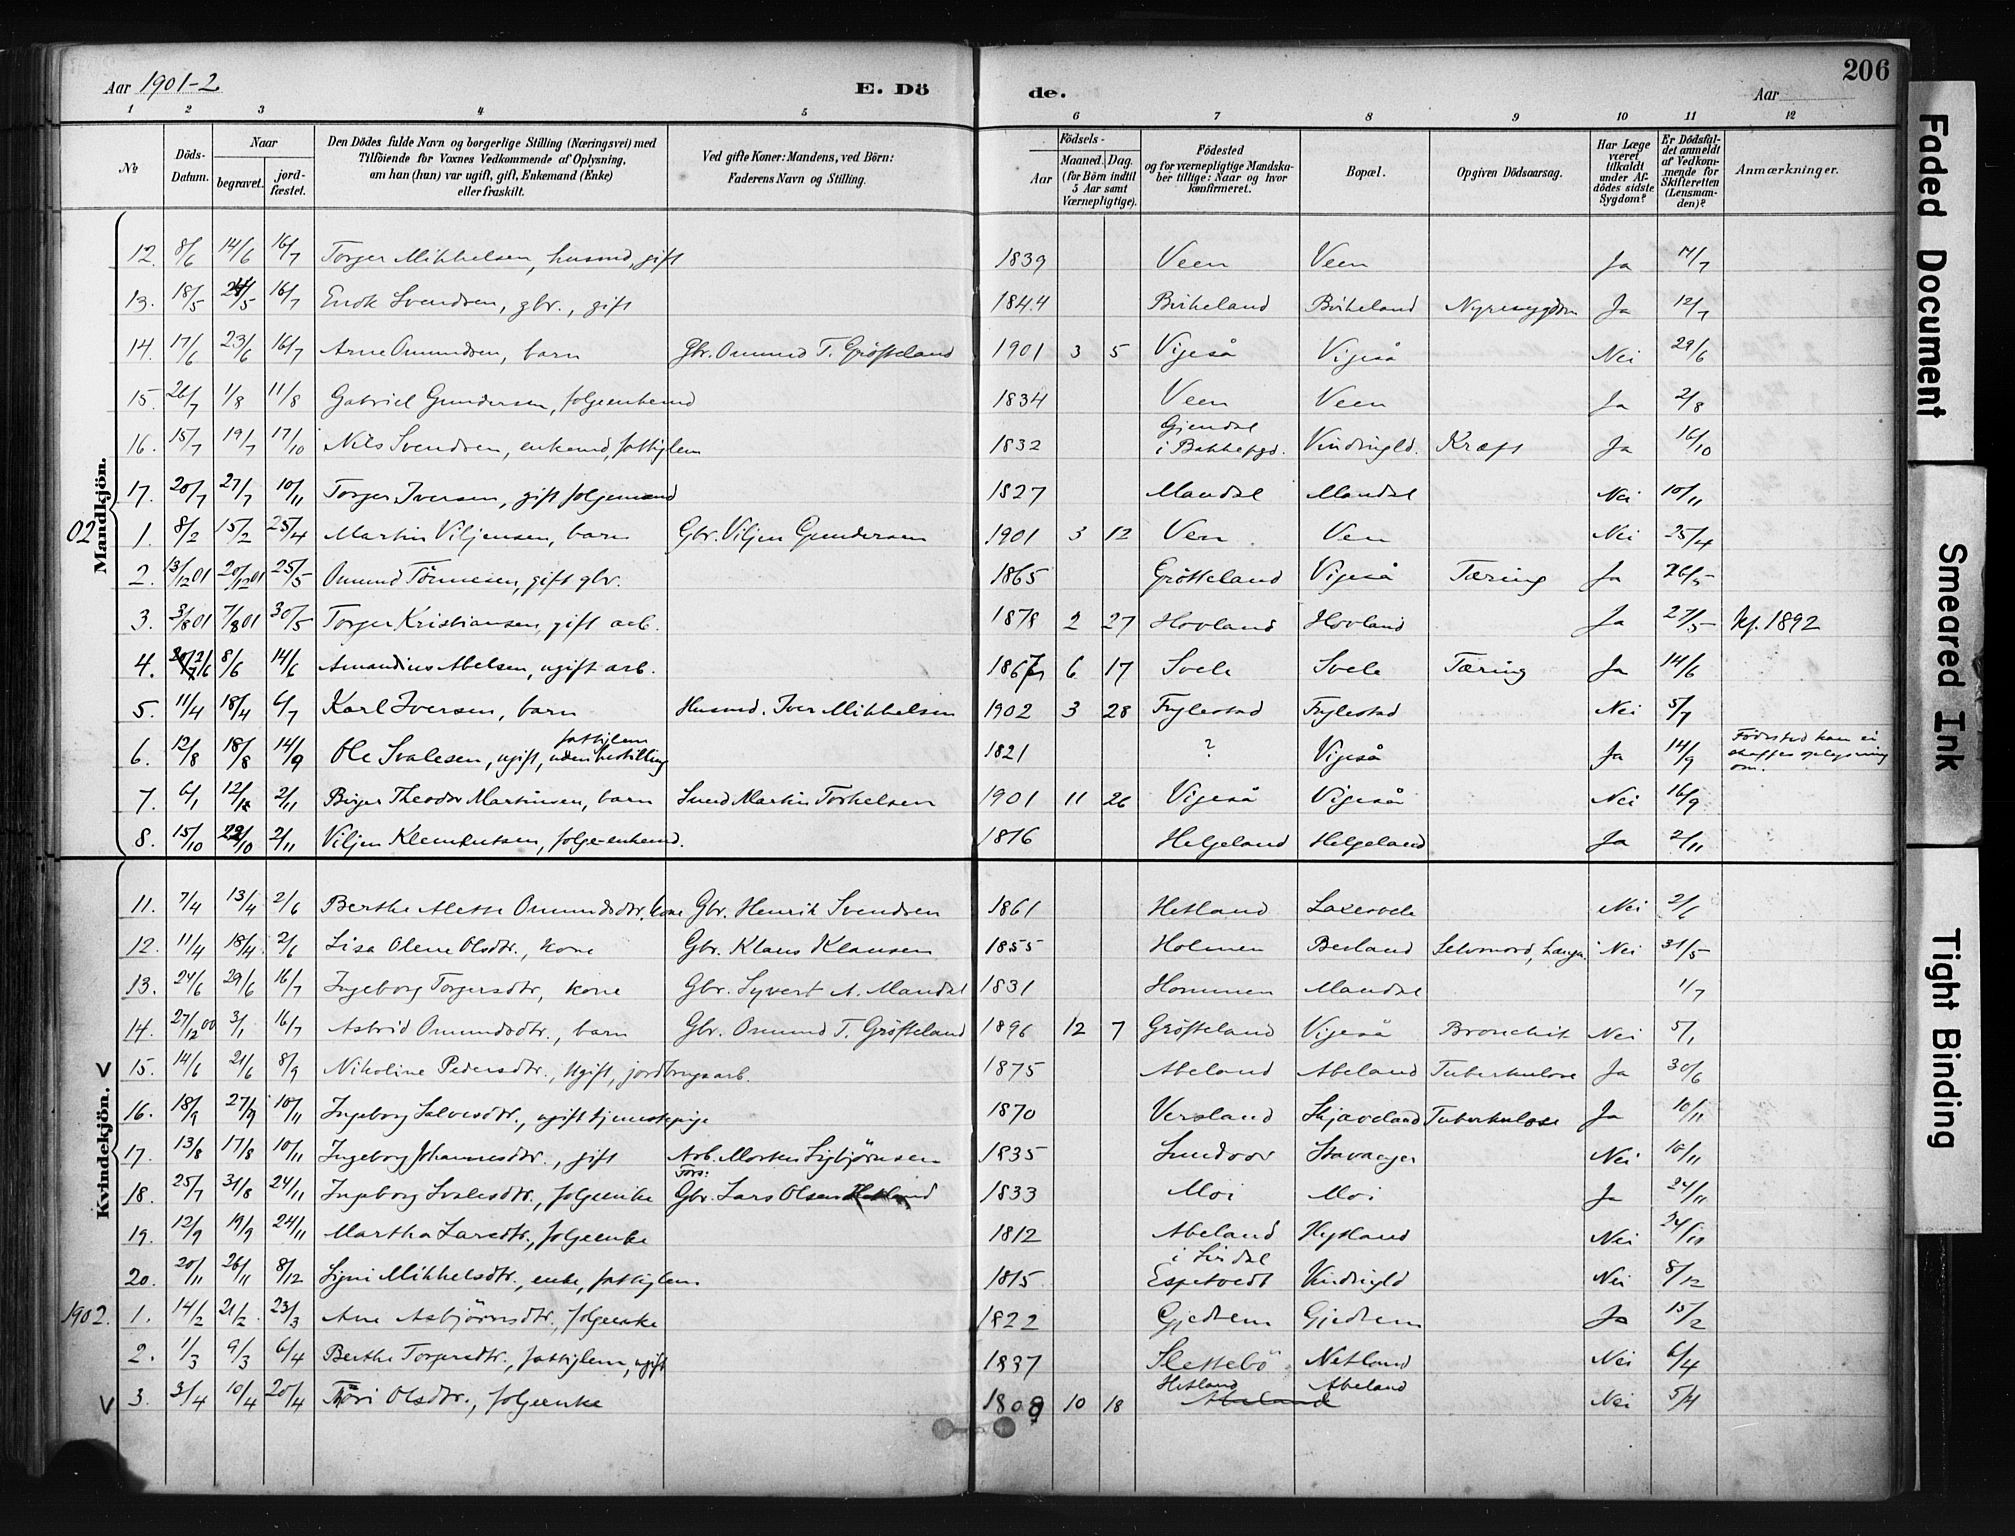 Aar 1901-2
E. Dö
de.
Aar
206
1 2 3 4 5 6 7 8 9 10 11 12
No
Döds-Datum.
Naar
begravet.
jord-fæstet.
Den Dödes fulde Navn og borgerlige Stilling (Næringsvei) med
Tilföiende for Voxnes Vedkommende af Oplysning,
om han (hun) var ugift, gift, Enkemand (Enke)
eller fraskilt.
Ved gifte Koner: Mandens, ved Börn:
Faderens Navn og Stilling.
Födsels-
Aar
Maaned. Dag.
(for Börn indtil
5 Aar samt
Værnepligtige).
Födested
og for værnepligtige Mandska-
ber tillige: Naar og hvor
konfirmeret.
Bopæl.
Opgiven Dödsaarsag.
Har Læge
været
tilkaldt
under Af-
dödes sidste
Sygdom?
Er Dödsfal-
det anmeldt
af Vedkom-
mende for
Skifteretten
(Lensman-
den)?
Anmærkninger.
Mandkjön.
12. 8/6 14/6 16/7 Torger Mikkelsen, husmd, gift 1839 Veen Veen Ja 17/7
13. 18/5 24/5 16/7 Enok Svendsen, gbr., gift 1844 Birkeland Birkeland Nyresygdom Ja 12/7
14. 17/6 23/6 16/7 Arne Omundsen, barn Gbr. Omund T. Grösteland 1901 3 5 Vigeså Vigeså Nei 29/6
15. 26/7 1/8 11/8 Gabriel Gundersen, folgeenkemd 1834 Veen Veen Ja 2/8
16. 15/7 19/7 17/10 Nils Svendsen, enkemd, fattiglem 1832 Gjendal i Bakkepgd. Vindingld. Kræft Ja 16/10
17. 20/7 27/7 10/11 Torger Iversen, gift folgemand 1827 Mandal Mandal Nei 10/11
02 1. 8/2 15/2 25/4 Martin Viljensen, barn Gbr. Viljen Gundersen 1901 3 12 Veen Veen Nei 25/4
2. 13/12 01 20/12 01 25/5 Omund Tönnesen, gift gbr. 1865 Grötteland Vigeså Tæring Ja 26/5
3. 3/8 01 7/8 01 30/5 Torger Kristiansen, gift arb. 1878 2 27 Hovland Hovland Ja 27/5 Kf. 1892
4. 2/6 8/6 14/6 Amandius Abelsen, ugift arb. 1867 6 17 Svele Svele Tæring Ja 14/6
5. 11/4 18/4 6/7 Karl Iversen, barn Husmd. Iver Mikkelsen 1902 3 28 Fuglestad Fuglestad Nei 5/7
6. 12/8 18/8 14/9 Ole Svalesen, ugift, fattiglem uden bestilling 1821 ? Vigeså Ja 14/9 Födested kan ei skaffes oplysning om.
7. 6/1 12/1 2/11 Birger Theodor Martinsen, barn Smed Martin Torkelsen 1901 11 26 Vigeså Vigeså Nei 16/9
8. 15/10 22/10 2/11 Viljen Klementsen, folge-enkemd. 1816 Helgeland Helgeland Ja 2/11
Kvindekjön.
11. 7/4 13/4 2/6 Berthe Alette Omundsdtr. kone Gbr. Henrik Svendsen 1861 Hetland Laxesvela Nei 2/6
12. 11/4 18/4 2/6 Lisa Olene Olsdtr., kone Gbr. Klaus Klausen 1855 Holmen Berland Selvmord, Nei 31/5
13. 24/6 29/6 16/7 Ingeborg Torgersdtr, kone Gbr. Syvert A. Mandal 1831 Hommen Mandal 1/7
14. 27/12 00 3/1 16/7 Astrid Omundsdtr., barn Gbr. Omund T. Grösteland 1896 12 7 Grösteland Vigeså Bronchit Nei 5/1
15. 14/6 21/6 8/9 Nikoline Pedersdtr., ugift, jordbrugsarb. 1875 Abeland Abeland Tuberkulose Ja 30/6
16. 18/9 27/9 10/11 Ingeborg Salvesdtr., ugift tjenestepige 1870 Versland Skjæveland Tuberkulose Ja 10/11
17. 13/8 17/8 10/11 Ingeborg Johannesdtr., gift Arb. Morten Sigbjörnsen 1835 Sundvor Stavanger Nei 10/11
18. 25/7 31/8 24/11 Ingeborg Svalesdtr., folgeenke Fors: Gbr. Lars Olsen Hetland 1833 Moi Moi Ja 24/11
19. 12/9 19/9 24/11 Martha Larsdtr., folgeenke 1812 Abeland Hytland Nei 24/11
20. 20/11 26/11 8/12 Signi Mikkelsdtr., enke, fattiglem 1815 i Sirdal Espetvedt Vindingld Nei 8/12
1902. 1. 14/2 21/2 23/3 Ane Asbjörnsdtr., folgeenke 1822 Gjedrem Gjedrem Ja 15/2
2. 1/3 9/3 6/4 Berthe Torgersdtr., fattiglem, ugift 1837 Slettebö Netland Nei 6/4
3. 3/4 10/4 20/4 Töri Olsdtr., folgeenke 1809 10 18 Hetland Abeland Abeland Nei 5/4
Faded Document
Smeared Ink
Tight Binding